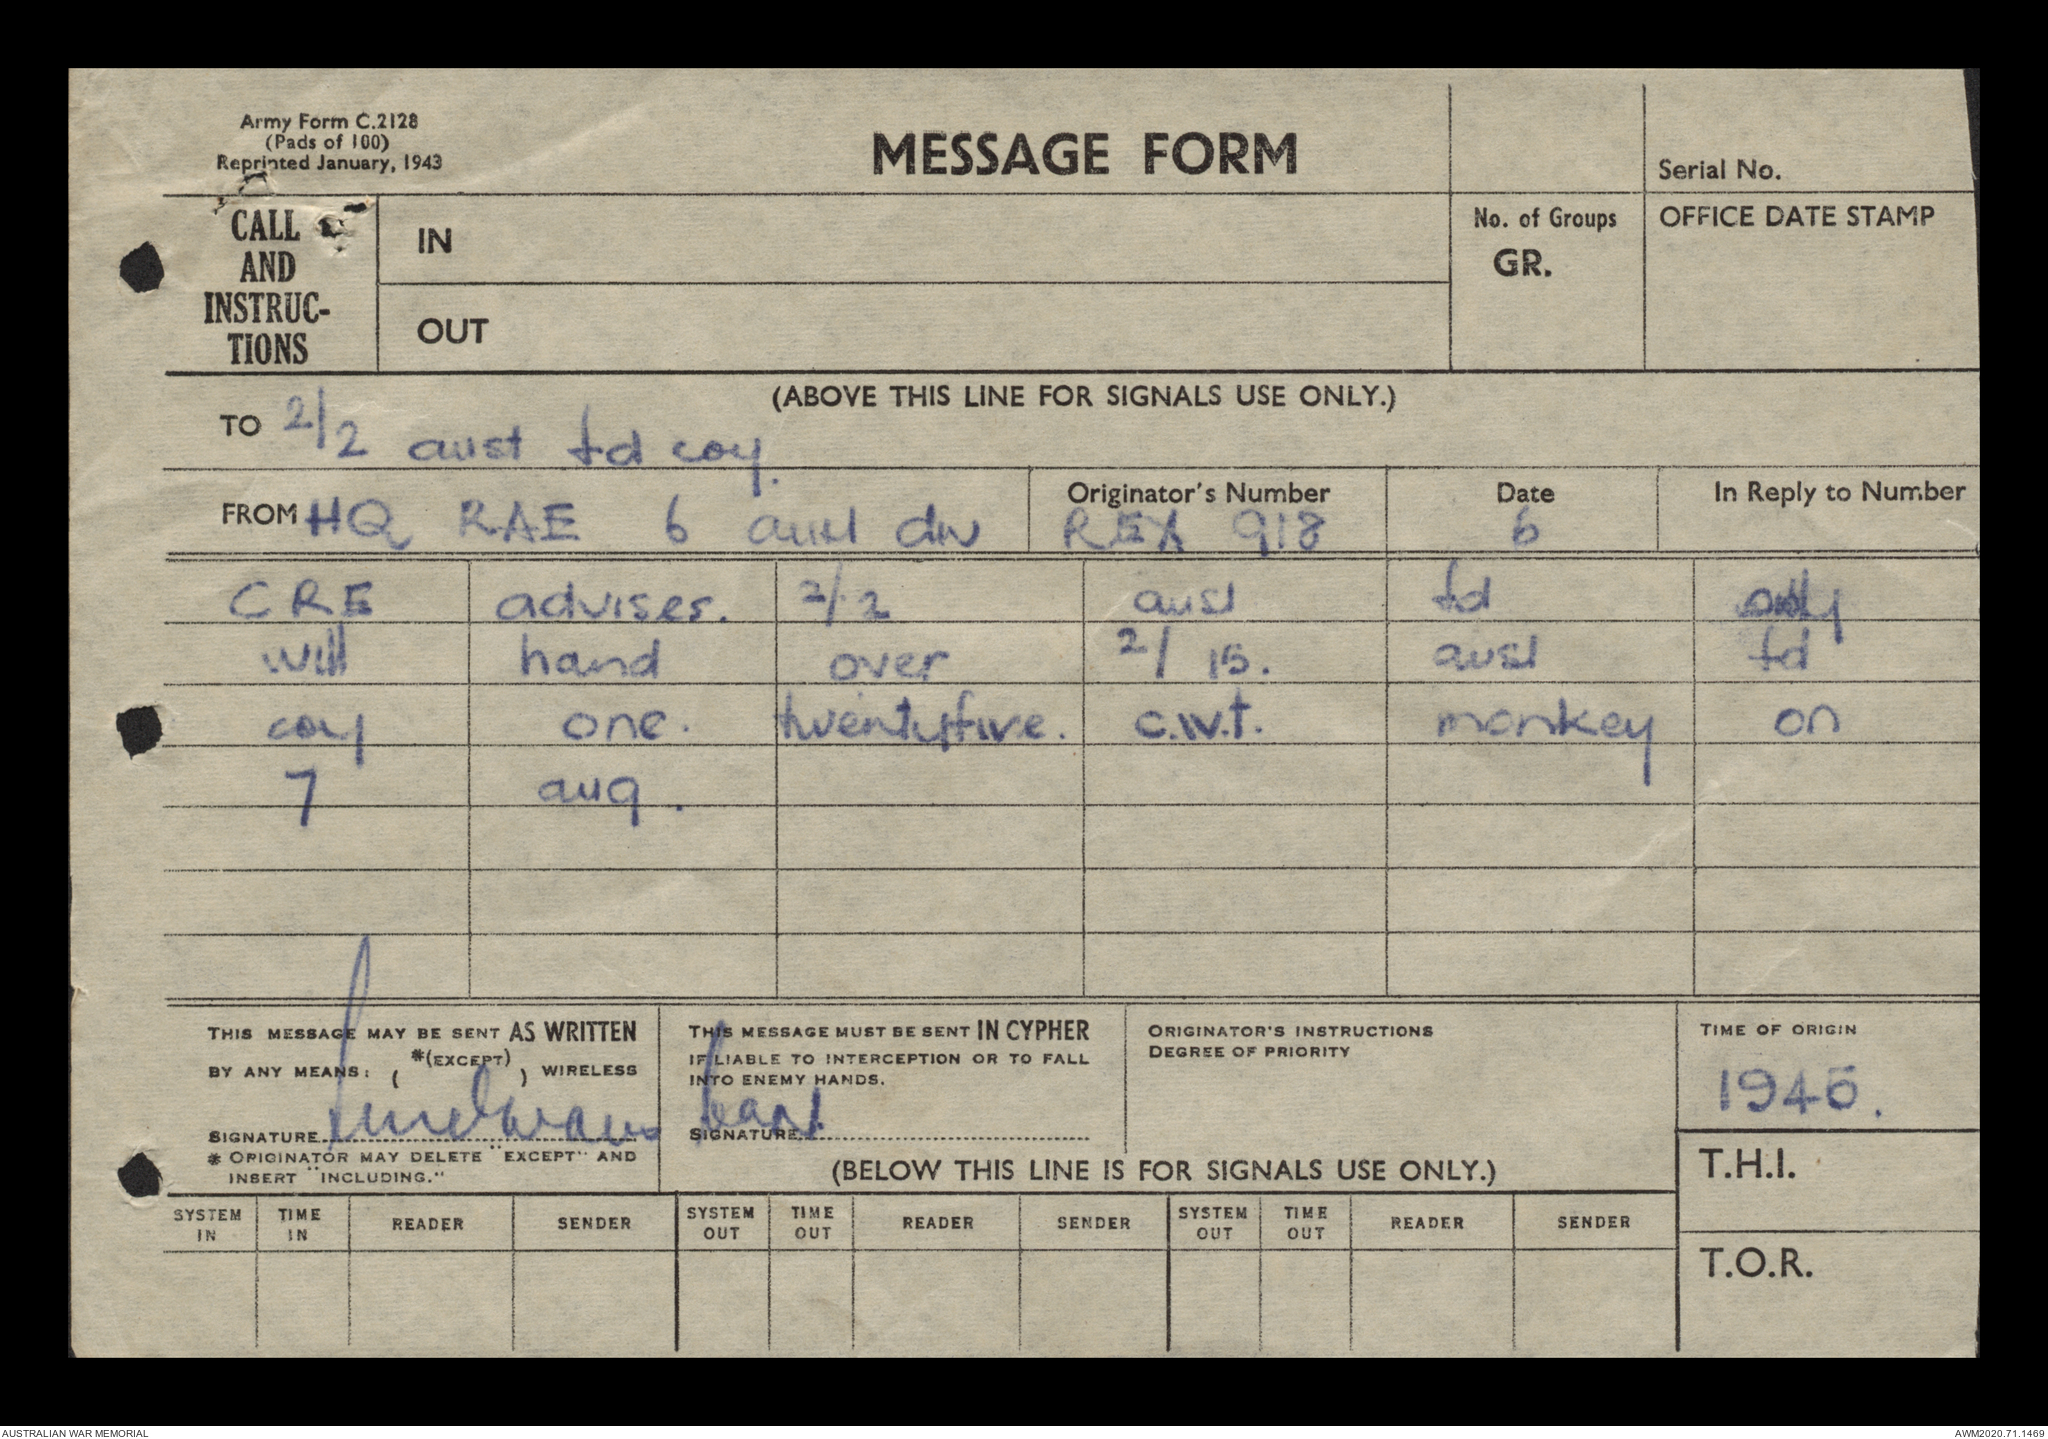 Army Form C.2128
(Pads of 100)
Reprinted January, 1943
MESSAGE FORM
Serial No.
CALL AND INSTRUC-TIONS
IN
OUT
No. of Groups
GR.
OFFICE DATE STAMP
(ABOVE THIS LINE FOR SIGNALS USE ONLY.)
TO 2/2 aust fd coy.
FROM HQ RAE 6 aust div
Originator's Number REX 918
Date 6
In Reply to Number
CRE advises. 2/2 aust fd coy
will hand over 2/15. aust fd
coy one. twentyfive. c.w.t. monkey on
7 aug.
THIS MESSAGE MAY BE SENT AS WRITTEN
BY ANY MEANS: ( *(EXCEPT) ) WIRELESS
SIGNATURE
* ORIGINATOR MAY DELETE "EXCEPT" AND
INSERT "INCLUDING."
THIS MESSAGE MUST BE SENT IN CYPHER
IF LIABLE TO INTERCEPTION OR TO FALL
INTO ENEMY HANDS.
SIGNATURE
ORIGINATOR'S INSTRUCTIONS
DEGREE OF PRIORITY
TIME OF ORIGIN
1945.
(BELOW THIS LINE IS FOR SIGNALS USE ONLY.)
T.H.I.
T.O.R.
SYSTEM IN TIME IN READER SENDER SYSTEM OUT TIME OUT READER SENDER SYSTEM OUT TIME OUT READER SENDER
AUSTRALIAN WAR MEMORIAL
AWM2020.71.1469